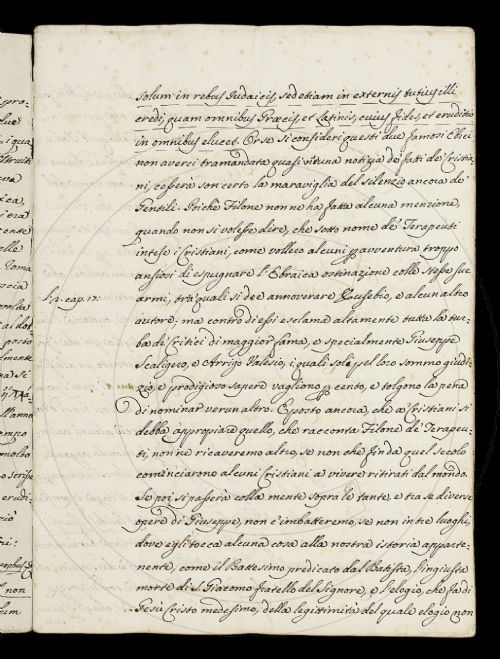 solum in rebus Judaicis, sed etiam in externis tutius illi
credi, quam omnibus Græcis, et Latinis, cuius fides, et eruditio
in omnibus elucet. Or se si consideri questi due famosi Ebrei
non averci tramandata quasi veruna notizia de' fatti de' Cristia
ni, cesserà son certo la maraviglia del silenzio ancora de'
Gentili. Poichè Filone non ne ha fatta alcuna menzione,
quando non si volesse dire, che sotto nome de' Terapeuti
intese i Cristiani, come vollero alcuni pavventura troppo
ansiosi di espugnare l'Ebraica ostinazione colle stesse sue
L. 2. cap. 17.
armi, tra' quali si dee annoverare Eusebio, e alcun altro
autore; ma contro di essi esclama altamente tutta la tur=
ba de' Critici di maggior fama, e specialmente Giuseppe
Scaligero, e Arrigo Valesio, i quali soli pel loro sommo giudi=
zio, e prodigioso sapere vagliono p cento, e tolgono la pena
di nominar verun altro. E posto ancora, che a' Cristiani si
debba appropiare quello, che racconta Filone de' Terapeu=
ti, non ne ricaveremo altro, se non che fin da quel secolo
cominciarono alcuni Cristiani a vivere ritirati dal mondo.
Se poi si passerà colla mente sopra le tante, e tra se diverse
opere di Giuseppe, non c'imbatteremo, se non in tre luoghi,
dove egli tocca alcuna cosa alla nostra istoria apparte=
nente, come il Battesimo predicato dal Batista, l'ingiusta
morte di S. Giacomo fratello del Signore, e l'elogio, che fa di
Gesù Cristo medesimo, della legittimità del quale elogio non